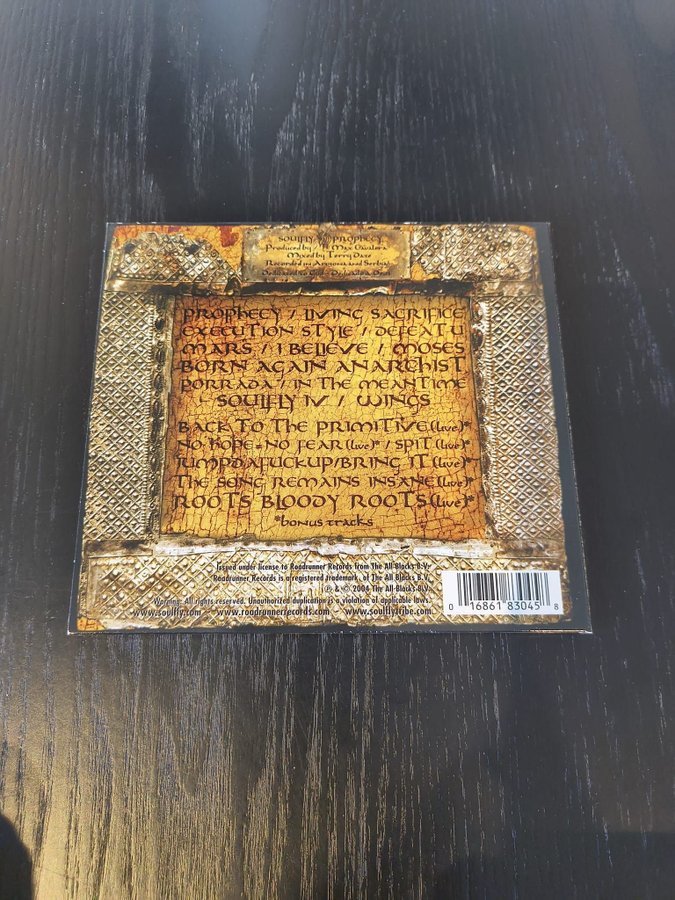 SOULFLY PROPHECY
Produced by Max Cavalera
Mixed by Terry Date
Recorded in Arizona and Serbia
Dedicated to God
PROPHECY / LIVING SACRIFICE
EXECUTION STYLE / DEFEAT U
MARS / I BELIEVE / MOSES
BORN AGAIN ANARCHIST
PORRADA / IN THE MEANTIME
SOULFLY IV / WINGS
BACK TO THE PRIMITIVE (live)*
NO HOPE = NO FEAR (live)* / SPIT (live)*
JUMPDAFUCKUP/BRING IT (live)*
THE SONG REMAINS INSANE (live)*
ROOTS BLOODY ROOTS (live)*
*bonus tracks
Issued under license to Roadrunner Records from The All Blacks B.V.
Roadrunner Records is a registered trademark of The All Blacks B.V.
℗ & © 2004 The All Blacks B.V.
Warning: All rights reserved. Unauthorized duplication is a violation of applicable laws.
www.soulfly.com www.roadrunnerrecords.com www.soulflytribe.com
0 16861 83045 8